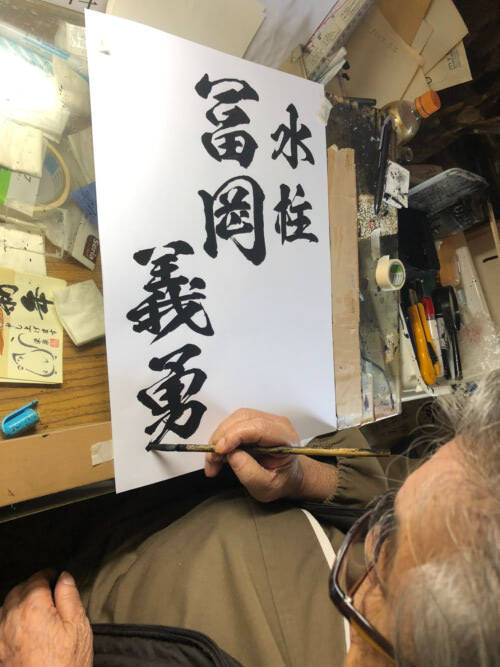 水柱
冨岡
義勇